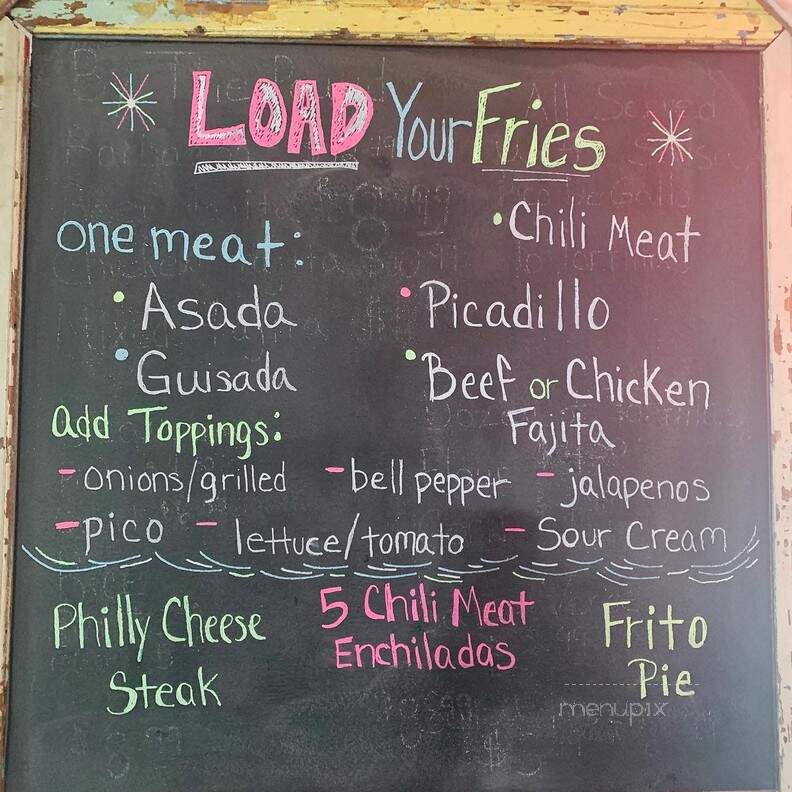 LOAD Your Fries
one meat:
• Chili Meat
• Asada
• Picadillo
• Guisada
• Beef or Chicken
Fajita
add Toppings:
- onions/grilled - bell pepper - jalapenos
- pico - lettuce/tomato - Sour Cream
Philly Cheese
Steak
5 Chili Meat
Enchiladas
Frito
Pie
menupix